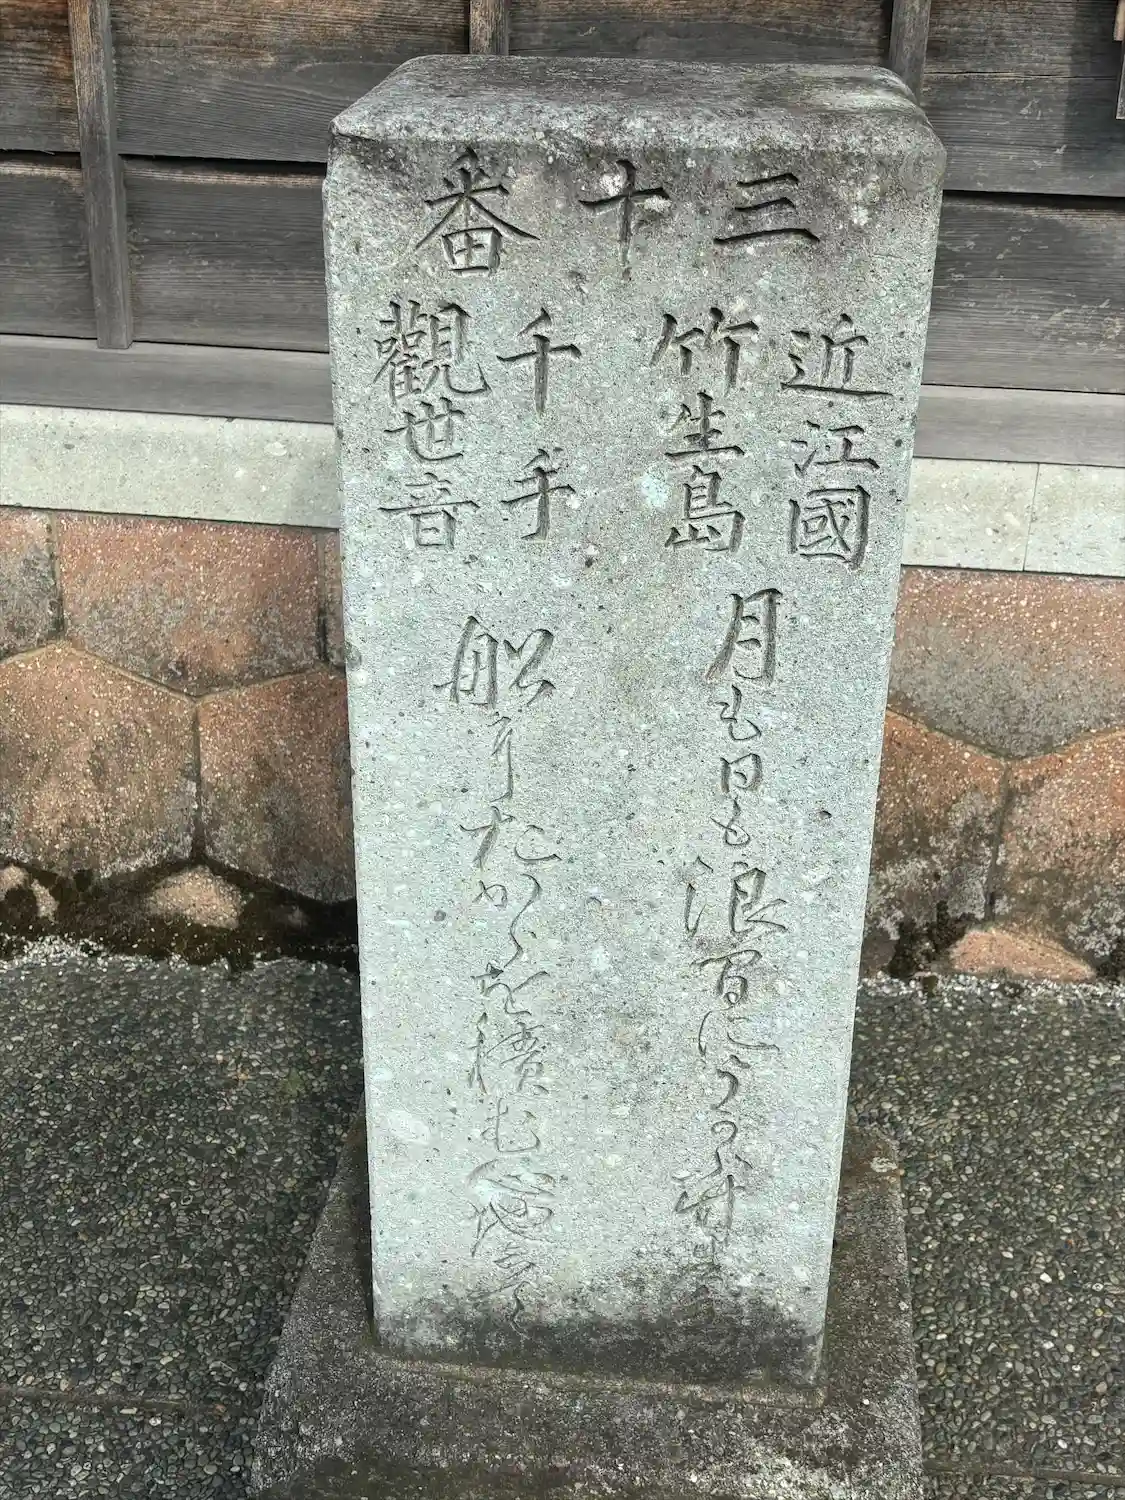 三十番
近江國
竹生島
千手
觀世音
月も日も浪間にうかふ竹生
船にたからを積む心地して